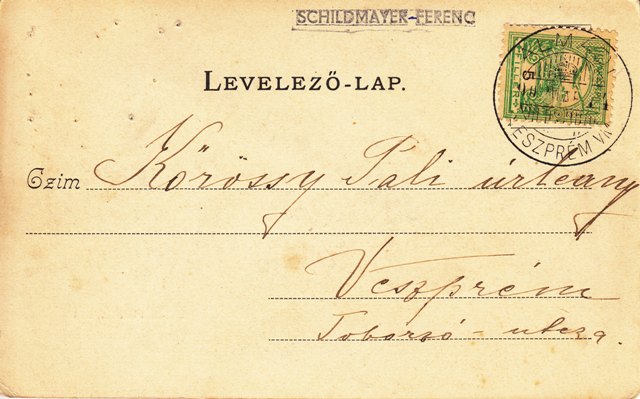 SCHILDMAYER-FERENC
LEVELEZŐ-LAP.
VESZPRÉM
Czim Kőrössy Pali úrleány
Veszprém
Toborzó-utcza.